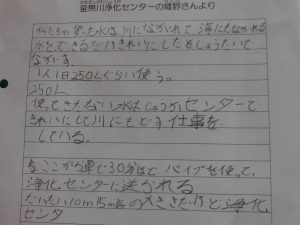 釜無川浄化センターの幡野さんより
私たちが使った水は川にながれて、海にもながれる
水をできるだけきれいにしたもじょうたいで
ながす。
1人1日250Lぐらい使う。
250L
使ってきたない水はじょうかセンターで
きれいにして川にもどす仕事を
している。
ここから車で30分ほど、パイプを使って、
浄化センターに送られる
だいたい10m 15mの大きさだけど浄化
センタ